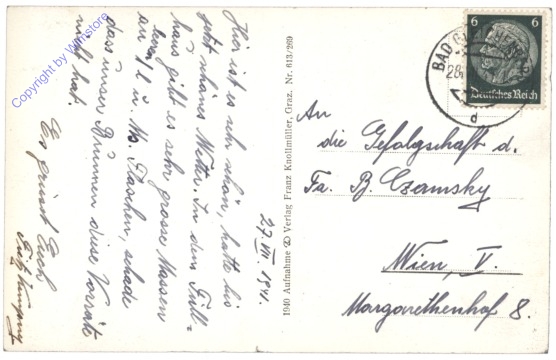 27. VII. 1941.
Hier ist es sehr schön, hatte bis
jetzt schönes Wetter. In dem Füll-
haus gibt es sehr grosse Massen
an 1/1 u. 1/2 Flaschen, schade
dass unser Brunnen diese Vorräte
nicht hat.
Es grüsst Euch
1940 Aufnahme Verlag Franz Knollmüller, Graz. Nr. 613/269
6 6
Deutsches Reich
BAD
28.
d
An
die Gefolgschaft d.
Fa. B. Czamsky
Wien, V.
Margarethenhof 8.
Copyright by Winstore